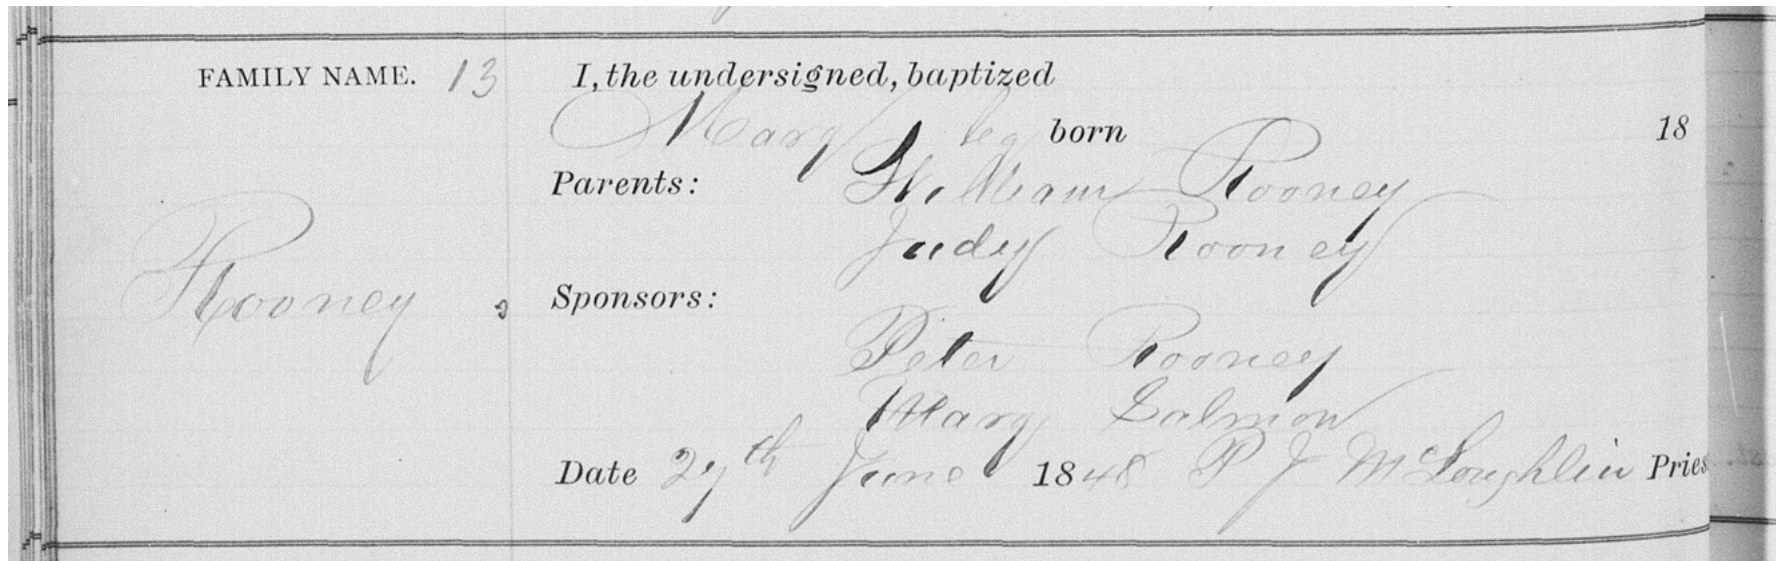 FAMILY NAME. 13
I, the undersigned, baptized
Mary born 18
Parents: William Rooney
Judy Rooney
Rooney
Sponsors:
Peter Rooney
Mary Salmon
Date 27th June 1848 P J McLoughlin Pries